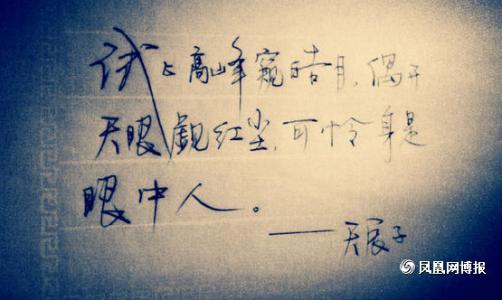 试上高峰窥皓月,偶开
天眼觑红尘,可怜身是
眼中人。
——天辰子
凤凰网博报